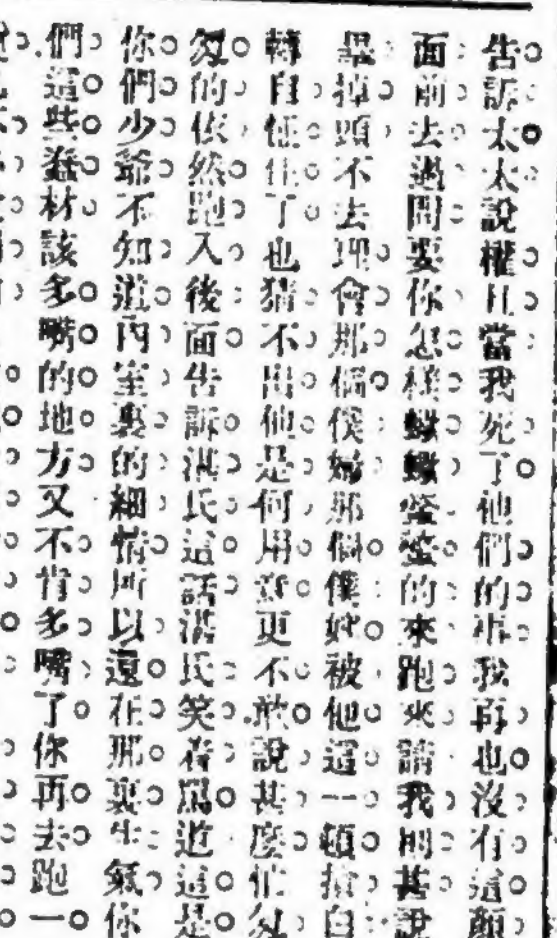 告訴太太說權且當我死了他們的事我再也沒有這顏
面前去過問要你怎樣蠍蠍螫螫的來跑來請我則甚說
畢掉頭不去理會那個僕婦那個僕婦被他這一頓搶白
轉自怔住了也猜不出他是何用意更不敢說甚麼忙匆
匆的依然跑入後面告訴湛氏這話湛氏笑着罵道這是
你們少爺不知道內室裏的細情所以還在那裏生氣你
們這些蠢材該多嘴的地方又不肯多嘴了你再去跑一